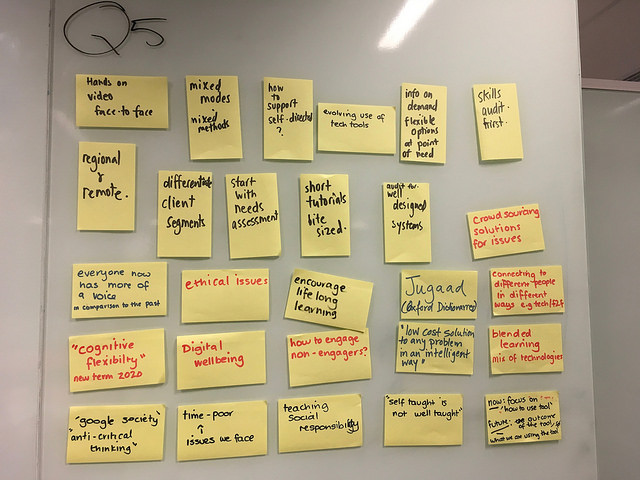 Q5
Hands on
video
face-to face
mixed
modes
mixed
methods
how
to
support
self-directed
?
evolving use of
tech tools
info on
demand
flexible
options
at point
of need
skills
audit.
first.
regional
&
remote.
different
client
segments
start
with
needs
assessment
short
tutorials
bite
sized.
audit for
well
designed
systems
Crowd sourcing
solutions
for issues
everyone now
has more of
a voice
in comparison to the past
ethical issues
encourage
life long
learning
Jugaad
(Oxford Dictionaries)
connecting to
different people
in different
ways e.g tech/f2f
"cognitive
flexibility"
new term 2020
Digital
wellbeing
how to engage
non-engagers?
"low cost solution
to any problem
in an intelligent
way"
blended
learning
mix of technologies
"google society"
"anti-critical
thinking"
time-poor
↑
issues we face
teaching
social
responsibility
"self taught is
not well taught"
now: focus on
"how to use tool"
future: outcome
of the tool,
what we are using the tool